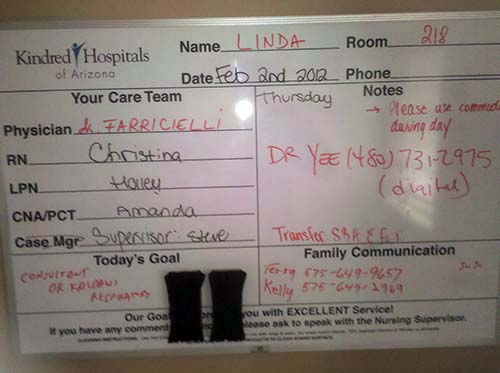 Kindred Hospitals
of Arizona
Name LINDA Room 218
Date Feb 2nd 2012 Phone
Your Care Team
Physician Dr. FARRICIELLI
RN Christina
LPN Hailey
CNA/PCT Amanda
Case Mgr Supervisor: Steve
Thursday
Notes
→ Please use commode
during day
DR YEE (480) 731-2975
(digital)
Transfer: SBA
Today's Goal
CONSULTANT
DR KALDAWI
RESPIRATORY
Family Communication
Terry 575-649-9657
Kelly 575-649-3969
Our Goal you with EXCELLENT Service!
If you have any comment please ask to speak with the Nursing Supervisor.
CLEANING INSTRUCTIONS: